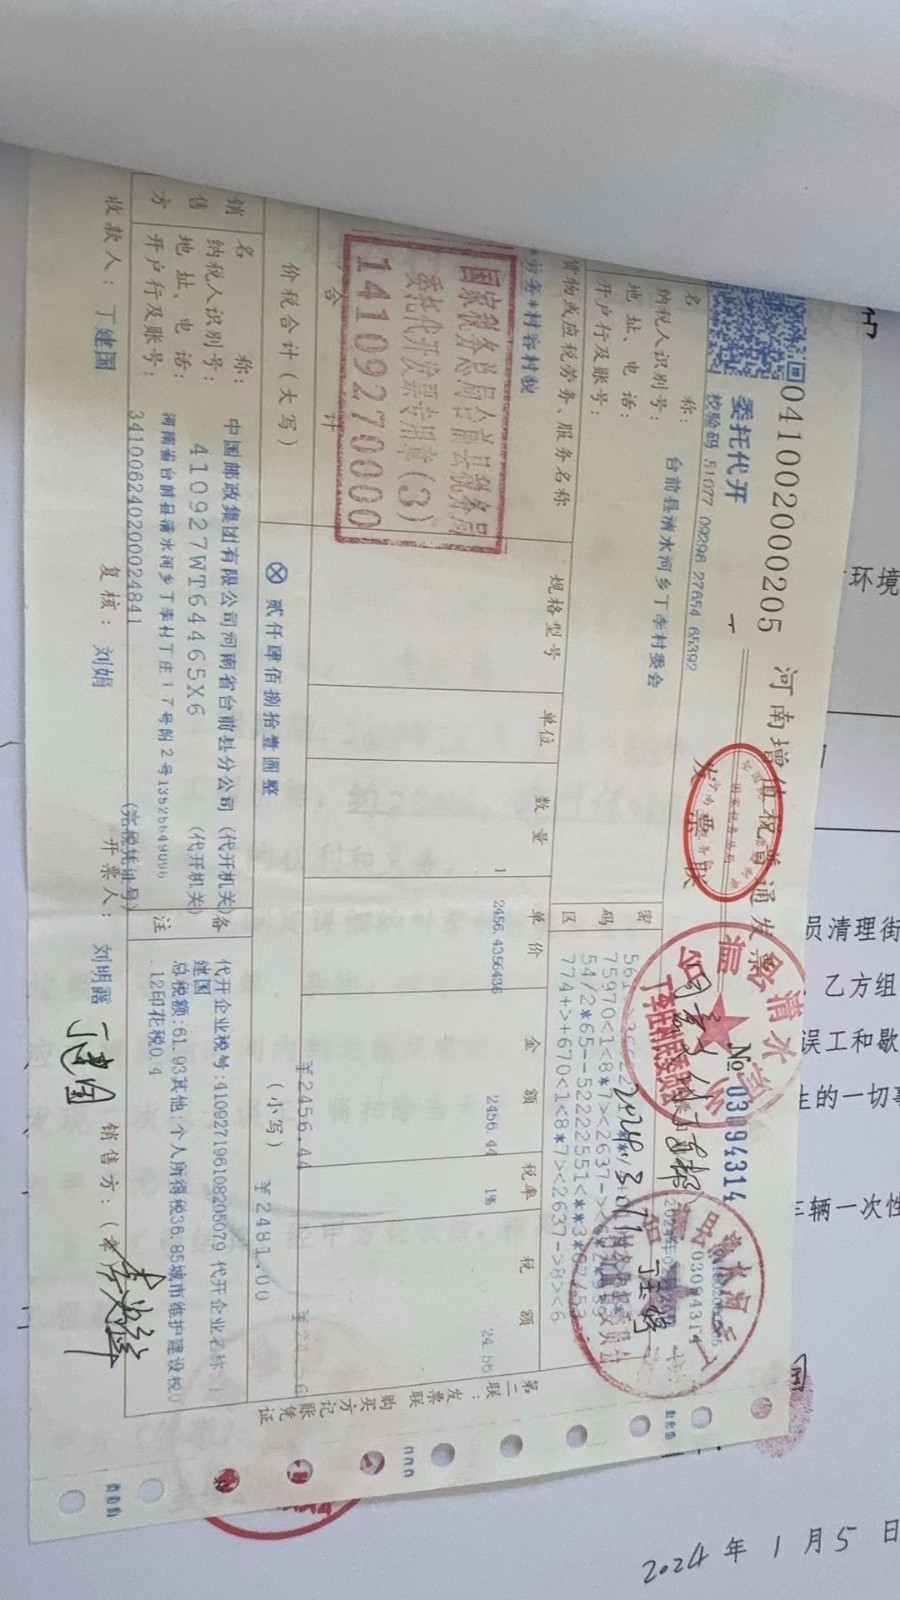 041002000205
河南增值税普通发票
№ 03094314
委托代开
校验码 51077 09298 27654 65392
发票联
名 称: 台前县清水河乡丁李村委会
纳税人识别号:
地址、电话:
开户行及账号:
密码区
75970<1<8*7><2637->
54/2*65--5222551<**3*67453
774+>+670<1<8*7><2637->8><6
货物或应税劳务、服务名称 规格型号 单位 数量 单价 金额 税率 税额
*劳务*村容村貌 1 2456.4356436 2456.44 1% 24.56
合计 ¥2456.44 ¥24.56
国家税务总局台前县税务局
委托代开发票专用章(3)
1410927000
价税合计(大写) ⊗ 贰仟肆佰捌拾壹圆整 (小写) ¥2481.00
销售方
名 称: 中国邮政集团有限公司河南省台前县分公司 (代开机关)
纳税人识别号: 410927WT64465X6 (代开机关)
地址、电话: 河南省台前县清水河乡丁李村丁庄17号附2号13525649096
开户行及账号: 341006240200024841 (完税凭证号)
备注
代开企业税号:410927196108205079 代开企业名称:丁
建国
总税额:61.93其他:个人所得税36.85城市维护建设税0
.12印花税0.4
收款人: 丁建国 复核: 刘娟 开票人: 刘明露 销售方:(章)
丁建国
第二联:发票联 购买方记账凭证
环境
员清理街
乙方组
误工和歇
生的一切事
车辆一次性
2024年1月5日